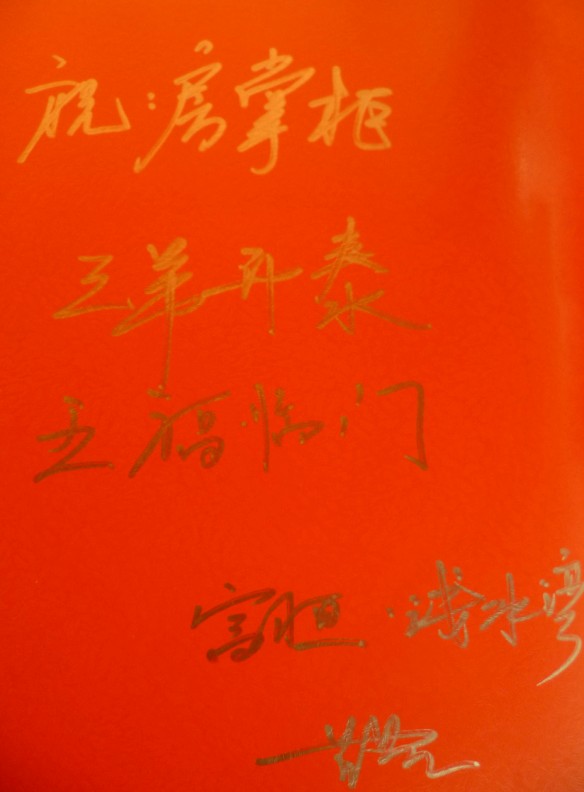 祝:房掌柜
三羊开泰
五福临门
富恒·浅水湾